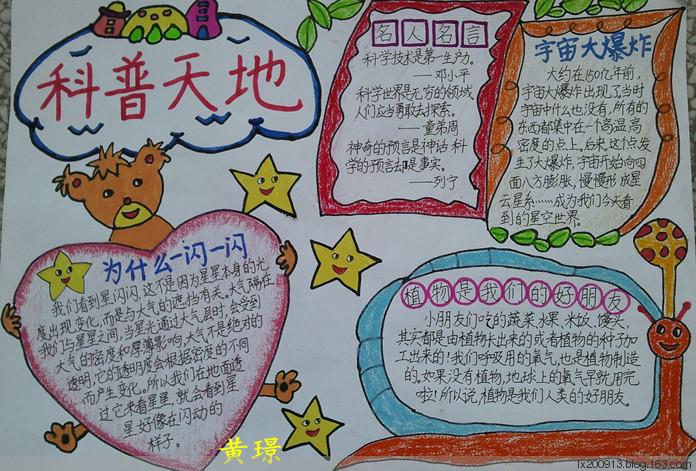 科普天地
名人名言
科学技术是第一生产力。
——邓小平
科学世界是无穷的领域
人们应当勇敢去探索。
——童弟周
神奇的预言是神话科
学的预言却是事实。
——列宁
宇宙大爆炸
大约在150亿年前,
宇宙大爆炸出现了当时
宇宙中什么也没有,所有的
东西都集中在一个高温,高
密度的点上。后来,这个点发
生了大爆炸,宇宙开始向四
面八方膨胀,慢慢形成星
云星系……成为我们今天看
到的星空世界。
为什么一闪一闪
我们看到星闪闪,这不是因为星星本身的光
度出现变化,而是与大气的遮挡有关。大气隔在
我们与星星之间,当星光通过大气层时,会受到
大气的密度和厚薄影响,大气不是绝对的
透明,它的透明度会根据密度的不同
而产生变化。所以我们在地面透
过它来看星星,就会看到星
星好像在闪动的
样子。
植物是我们的好朋友
小朋友们吃的蔬菜、水果、米饭、馒头,
其实都是由植物长出来的或者植物的种子加
工出来的!我们呼吸用的氧气,也是植物制造
的。如果没有植物,地球上的氧气早就用完
啦!所以说,植物是我们人类的好朋友。
黄璟
lx200913.blog.163.com